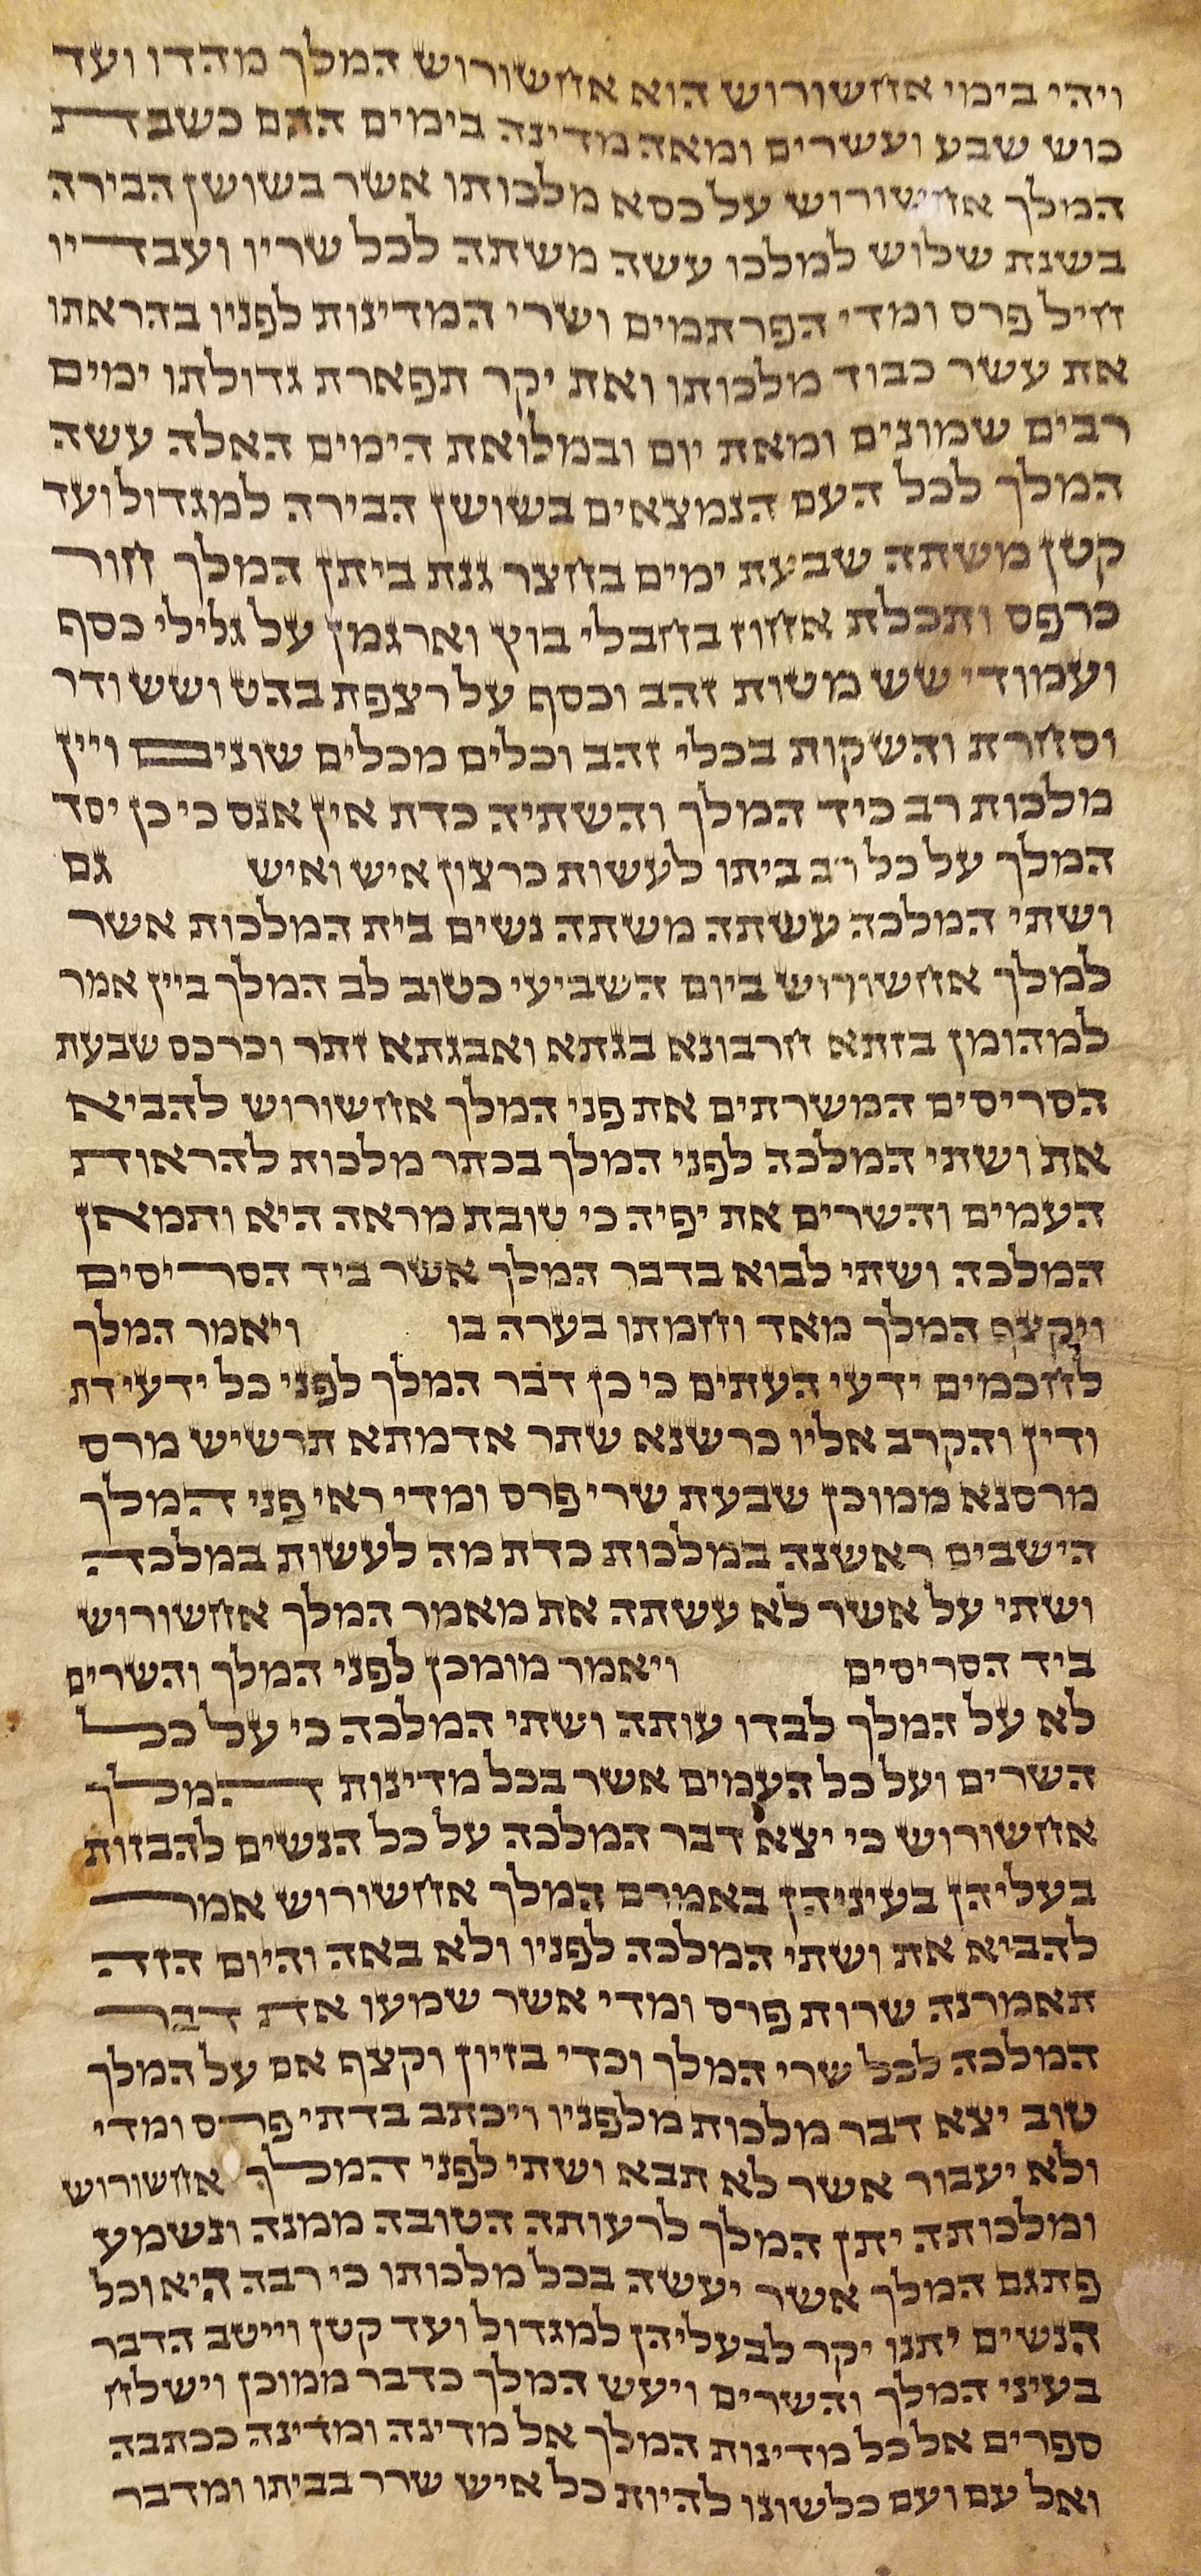 ויהי בימי אחשורוש הוא אחשורוש המלך מהדו ועד
כוש שבע ועשרים ומאה מדינה בימים ההם כשבת
המלך אחשורוש על כסא מלכותו אשר בשושן הבירה
בשנת שלוש למלכו עשה משתה לכל שריו ועבדיו
חיל פרס ומדי הפרתמים ושרי המדינות לפניו בהראתו
את עשר כבוד מלכותו ואת יקר תפארת גדולתו ימים
רבים שמונים ומאת יום ובמלואת הימים האלה עשה
המלך לכל העם הנמצאים בשושן הבירה למגדול ועד
קטן משתה שבעת ימים בחצר גנת ביתן המלך חור
כרפס ותכלת אחוז בחבלי בוץ וארגמן על גלילי כסף
ועמודי שש מטות זהב וכסף על רצפת בהט ושש ודר
וסחרת והשקות בכלי זהב וכלים מכלים שונים ויין
מלכות רב כיד המלך והשתיה כדת אין אנס כי כן יסד
המלך על כל רב ביתו לעשות כרצון איש ואיש גם
ושתי המלכה עשתה משתה נשים בית המלכות אשר
למלך אחשורוש ביום השביעי כטוב לב המלך ביין אמר
למהומן בזתא חרבונא בגתא ואבגתא זתר וכרכס שבעת
הסריסים המשרתים את פני המלך אחשורוש להביא
את ושתי המלכה לפני המלך בכתר מלכות להראות
העמים והשרים את יפיה כי טובת מראה היא ותמאן
המלכה ושתי לבוא בדבר המלך אשר ביד הסריסים
ויקצף המלך מאד וחמתו בערה בו ויאמר המלך
לחכמים ידעי העתים כי כן דבר המלך לפני כל ידעי דת
ודין והקרב אליו כרשנא שתר אדמתא תרשיש מרס
מרסנא ממוכן שבעת שרי פרס ומדי ראי פני המלך
הישבים ראשנה במלכות כדת מה לעשות במלכה
ושתי על אשר לא עשתה את מאמר המלך אחשורוש
ביד הסריסים ויאמר מומכן לפני המלך והשרים
לא על המלך לבדו עותה ושתי המלכה כי על כל
השרים ועל כל העמים אשר בכל מדינות המלך
אחשורוש כי יצא דבר המלכה על כל הנשים להבזות
בעליהן בעיניהן באמרם המלך אחשורוש אמר
להביא את ושתי המלכה לפניו ולא באה והיום הזה
תאמרנה שרות פרס ומדי אשר שמעו את דבר
המלכה לכל שרי המלך וכדי בזיון וקצף אם על המלך
טוב יצא דבר מלכות מלפניו ויכתב בדתי פרס ומדי
ולא יעבור אשר לא תבא ושתי לפני המלך אחשורוש
ומלכותה יתן המלך לרעותה הטובה ממנה ונשמע
פתגם המלך אשר יעשה בכל מלכותו כי רבה היא וכל
הנשים יתנו יקר לבעליהן למגדול ועד קטן וייטב הדבר
בעיני המלך והשרים ויעש המלך כדבר ממוכן וישלח
ספרים אל כל מדינות המלך אל מדינה ומדינה ככתבה
ואל עם ועם כלשונו להיות כל איש שרר בביתו ומדבר